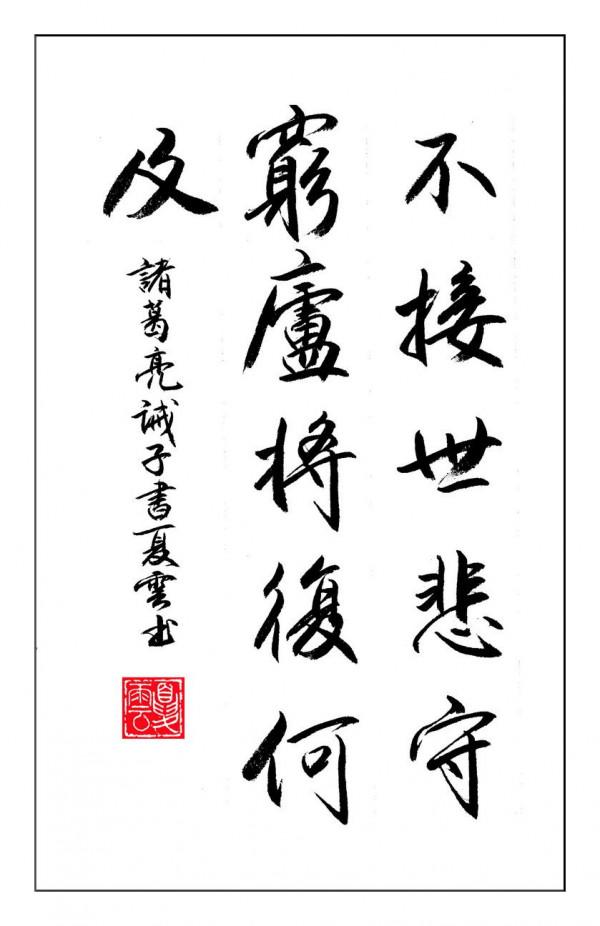 不接世悲守
窮廬將復何
及
諸葛亮誡子書夏雲书
夏雲